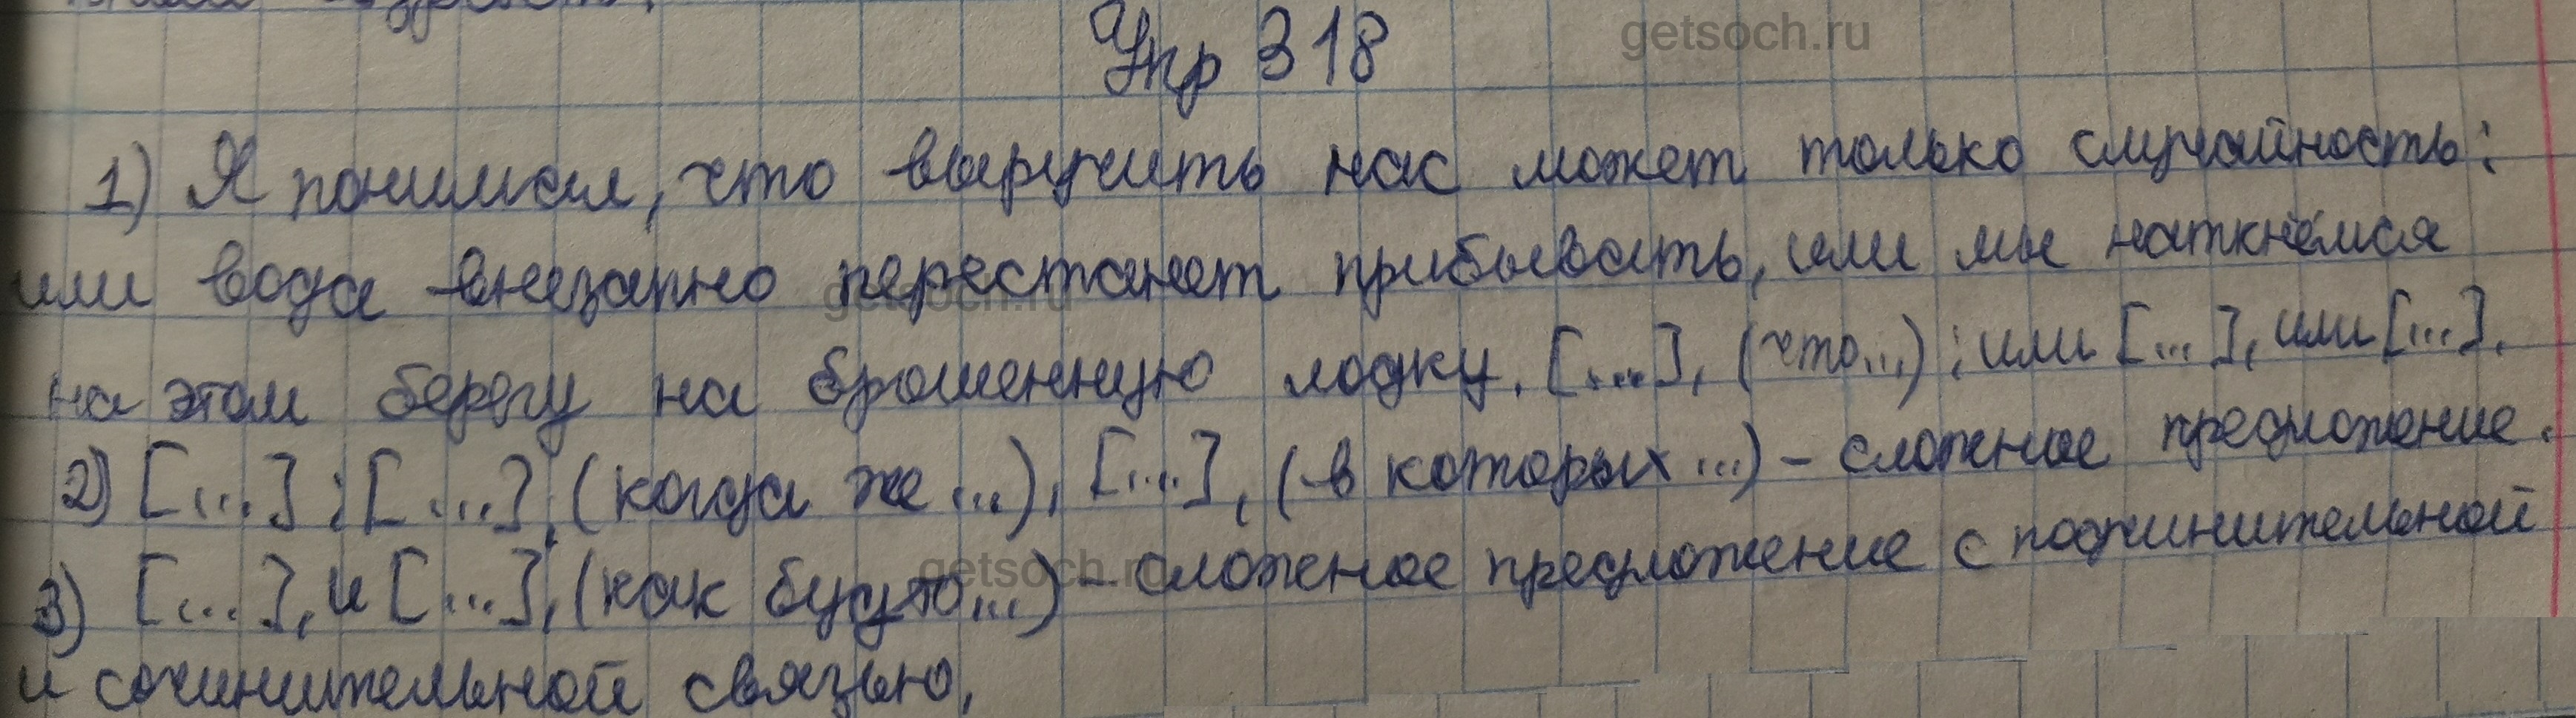 Упр 318
getsoch.ru
1) Я понимал, что выручить нас может только случайность:
или вода внезапно перестанет прибывать, или мы наткнёмся
getsoch.ru
на этом берегу на брошенную лодку. [...], (что...) : или [...], или [...].
2) [...] : [...], (когда же ...), [...], (в которых ...) – сложное предложение.
3) [...], и [...], (как будто...) – сложное предложение с подчинительной
getsoch.ru
и сочинительной связью.